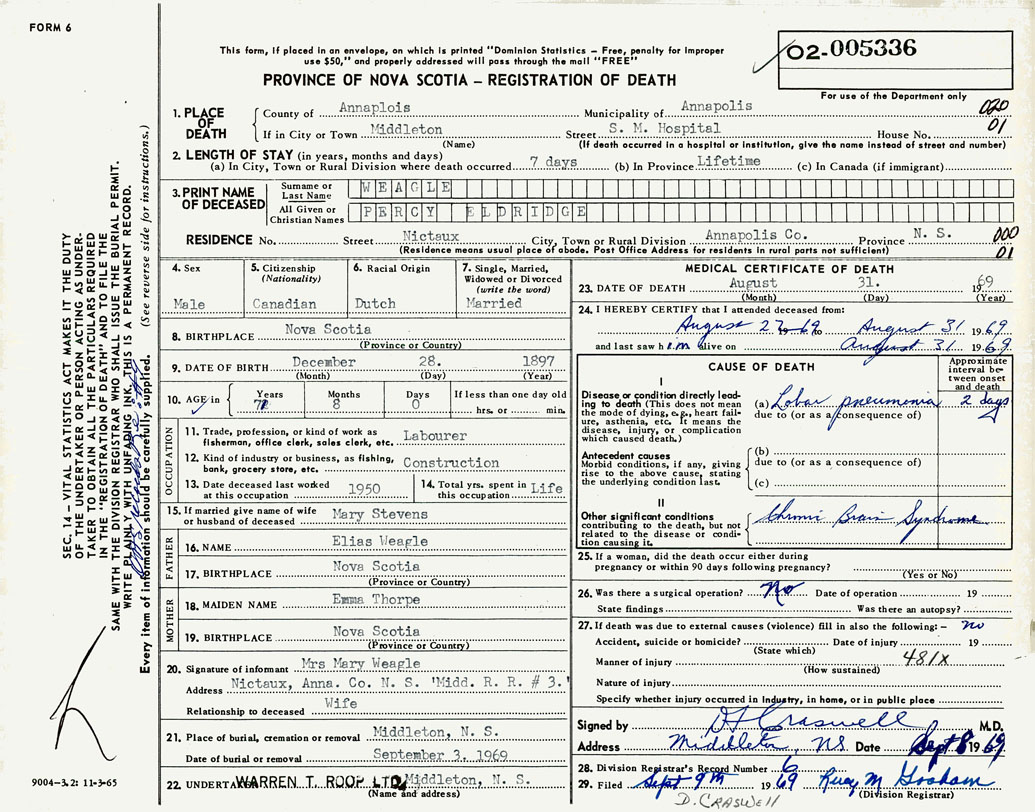 FORM 6
This form, if placed in an envelope, on which is printed "Dominion Statistics – Free, penalty for improper
use $50," and properly addressed will pass through the mail "FREE"
PROVINCE OF NOVA SCOTIA – REGISTRATION OF DEATH
02-005336
For use of the Department only
1. PLACE OF DEATH
County of Annaplois Municipality of Annapolis 020
If in City or Town Middleton Street S. M. Hospital House No. 01
(Name) (If death occurred in a hospital or institution, give the name instead of street and number)
2. LENGTH OF STAY (in years, months and days)
(a) In City, Town or Rural Division where death occurred 7 days (b) In Province Lifetime (c) In Canada (if immigrant)
3. PRINT NAME OF DECEASED
Surname or Last Name WEAGLE
All Given or Christian Names PERCY ELDRIDGE
RESIDENCE No. Street Nictaux City, Town or Rural Division Annapolis Co. Province N. S. 000
(Residence means usual place of abode. Post Office Address for residents in rural parts not sufficient) 01
4. Sex
Male
5. Citizenship
(Nationality)
Canadian
6. Racial Origin
Dutch
7. Single, Married,
Widowed or Divorced
(write the word)
Married
8. BIRTHPLACE Nova Scotia
(Province or Country)
9. DATE OF BIRTH December 28. 1897
(Month) (Day) (Year)
10. AGE in Years Months Days If less than one day old
8 0 hrs. or min.
OCCUPATION
11. Trade, profession, or kind of work as
fisherman, office clerk, sales clerk, etc. Labourer
12. Kind of industry or business, as fishing,
bank, grocery store, etc. Construction
13. Date deceased last worked
at this occupation 1950
14. Total yrs. spent in
this occupation Life
15. If married give name of wife
or husband of deceased Mary Stevens
FATHER
16. NAME Elias Weagle
17. BIRTHPLACE Nova Scotia
(Province or Country)
MOTHER
18. MAIDEN NAME Emma Thorpe
19. BIRTHPLACE Nova Scotia
(Province or Country)
20. Signature of informant Mrs Mary Weagle
Address Nictaux, Anna. Co. N. S. 'Midd. R. R. # 3.'
Relationship to deceased Wife
21. Place of burial, cremation or removal Middleton, N. S.
Date of burial or removal September 3, 1969
22. UNDERTAKER WARREN T. ROOP LTD. Middleton, N. S.
(Name and address)
MEDICAL CERTIFICATE OF DEATH
23. DATE OF DEATH August 31. 1969
(Month) (Day) (Year)
24. I HEREBY CERTIFY that I attended deceased from:
August 27 1969 to August 31 1969
and last saw him alive on August 31 1969
CAUSE OF DEATH
Approximate
interval be-
tween onset
and death
I
Disease or condition directly lead-
ing to death (This does not mean
the mode of dying, e.g., heart fail-
ure, asthenia, etc. It means the
disease, injury, or complication
which caused death.)
(a) Lobar pneumonia 2 days
due to (or as a consequence of)
Antecedent causes
Morbid conditions, if any, giving
rise to the above cause, stating
the underlying condition last.
(b)
due to (or as a consequence of)
(c)
II
Other significant conditions
contributing to the death, but not
related to the disease or condi-
tion causing it.
Chronic Brain Syndrome
25. If a woman, did the death occur either during
pregnancy or within 90 days following pregnancy?
(Yes or No)
26. Was there a surgical operation? No Date of operation 19
State findings Was there an autopsy?
27. If death was due to external causes (violence) fill in also the following:– no
Accident, suicide or homicide? Date of injury 19
(State which)
Manner of injury 481X
(How sustained)
Nature of injury
Specify whether injury occurred in industry, in home, or in public place
Signed by D H Craswell M.D.
Address Middleton, NS Date Sept 8 1969
28. Division Registrar's Record Number 6
29. Filed Sept 9th 1969
(Division Registrar)
D. CRASWELL
SEC. 14 – VITAL STATISTICS ACT MAKES IT THE DUTY
OF THE UNDERTAKER OR PERSON ACTING AS UNDER-
TAKER TO OBTAIN ALL THE PARTICULARS REQUIRED
IN THE "REGISTRATION OF DEATH" AND TO FILE THE
SAME WITH THE DIVISION REGISTRAR WHO SHALL ISSUE THE BURIAL PERMIT.
WRITE PLAINLY WITH UNFADING INK. THIS IS A PERMANENT RECORD.
Every item of information should be carefully supplied. (See reverse side for instructions.)
9004-3.2: 11-3-65